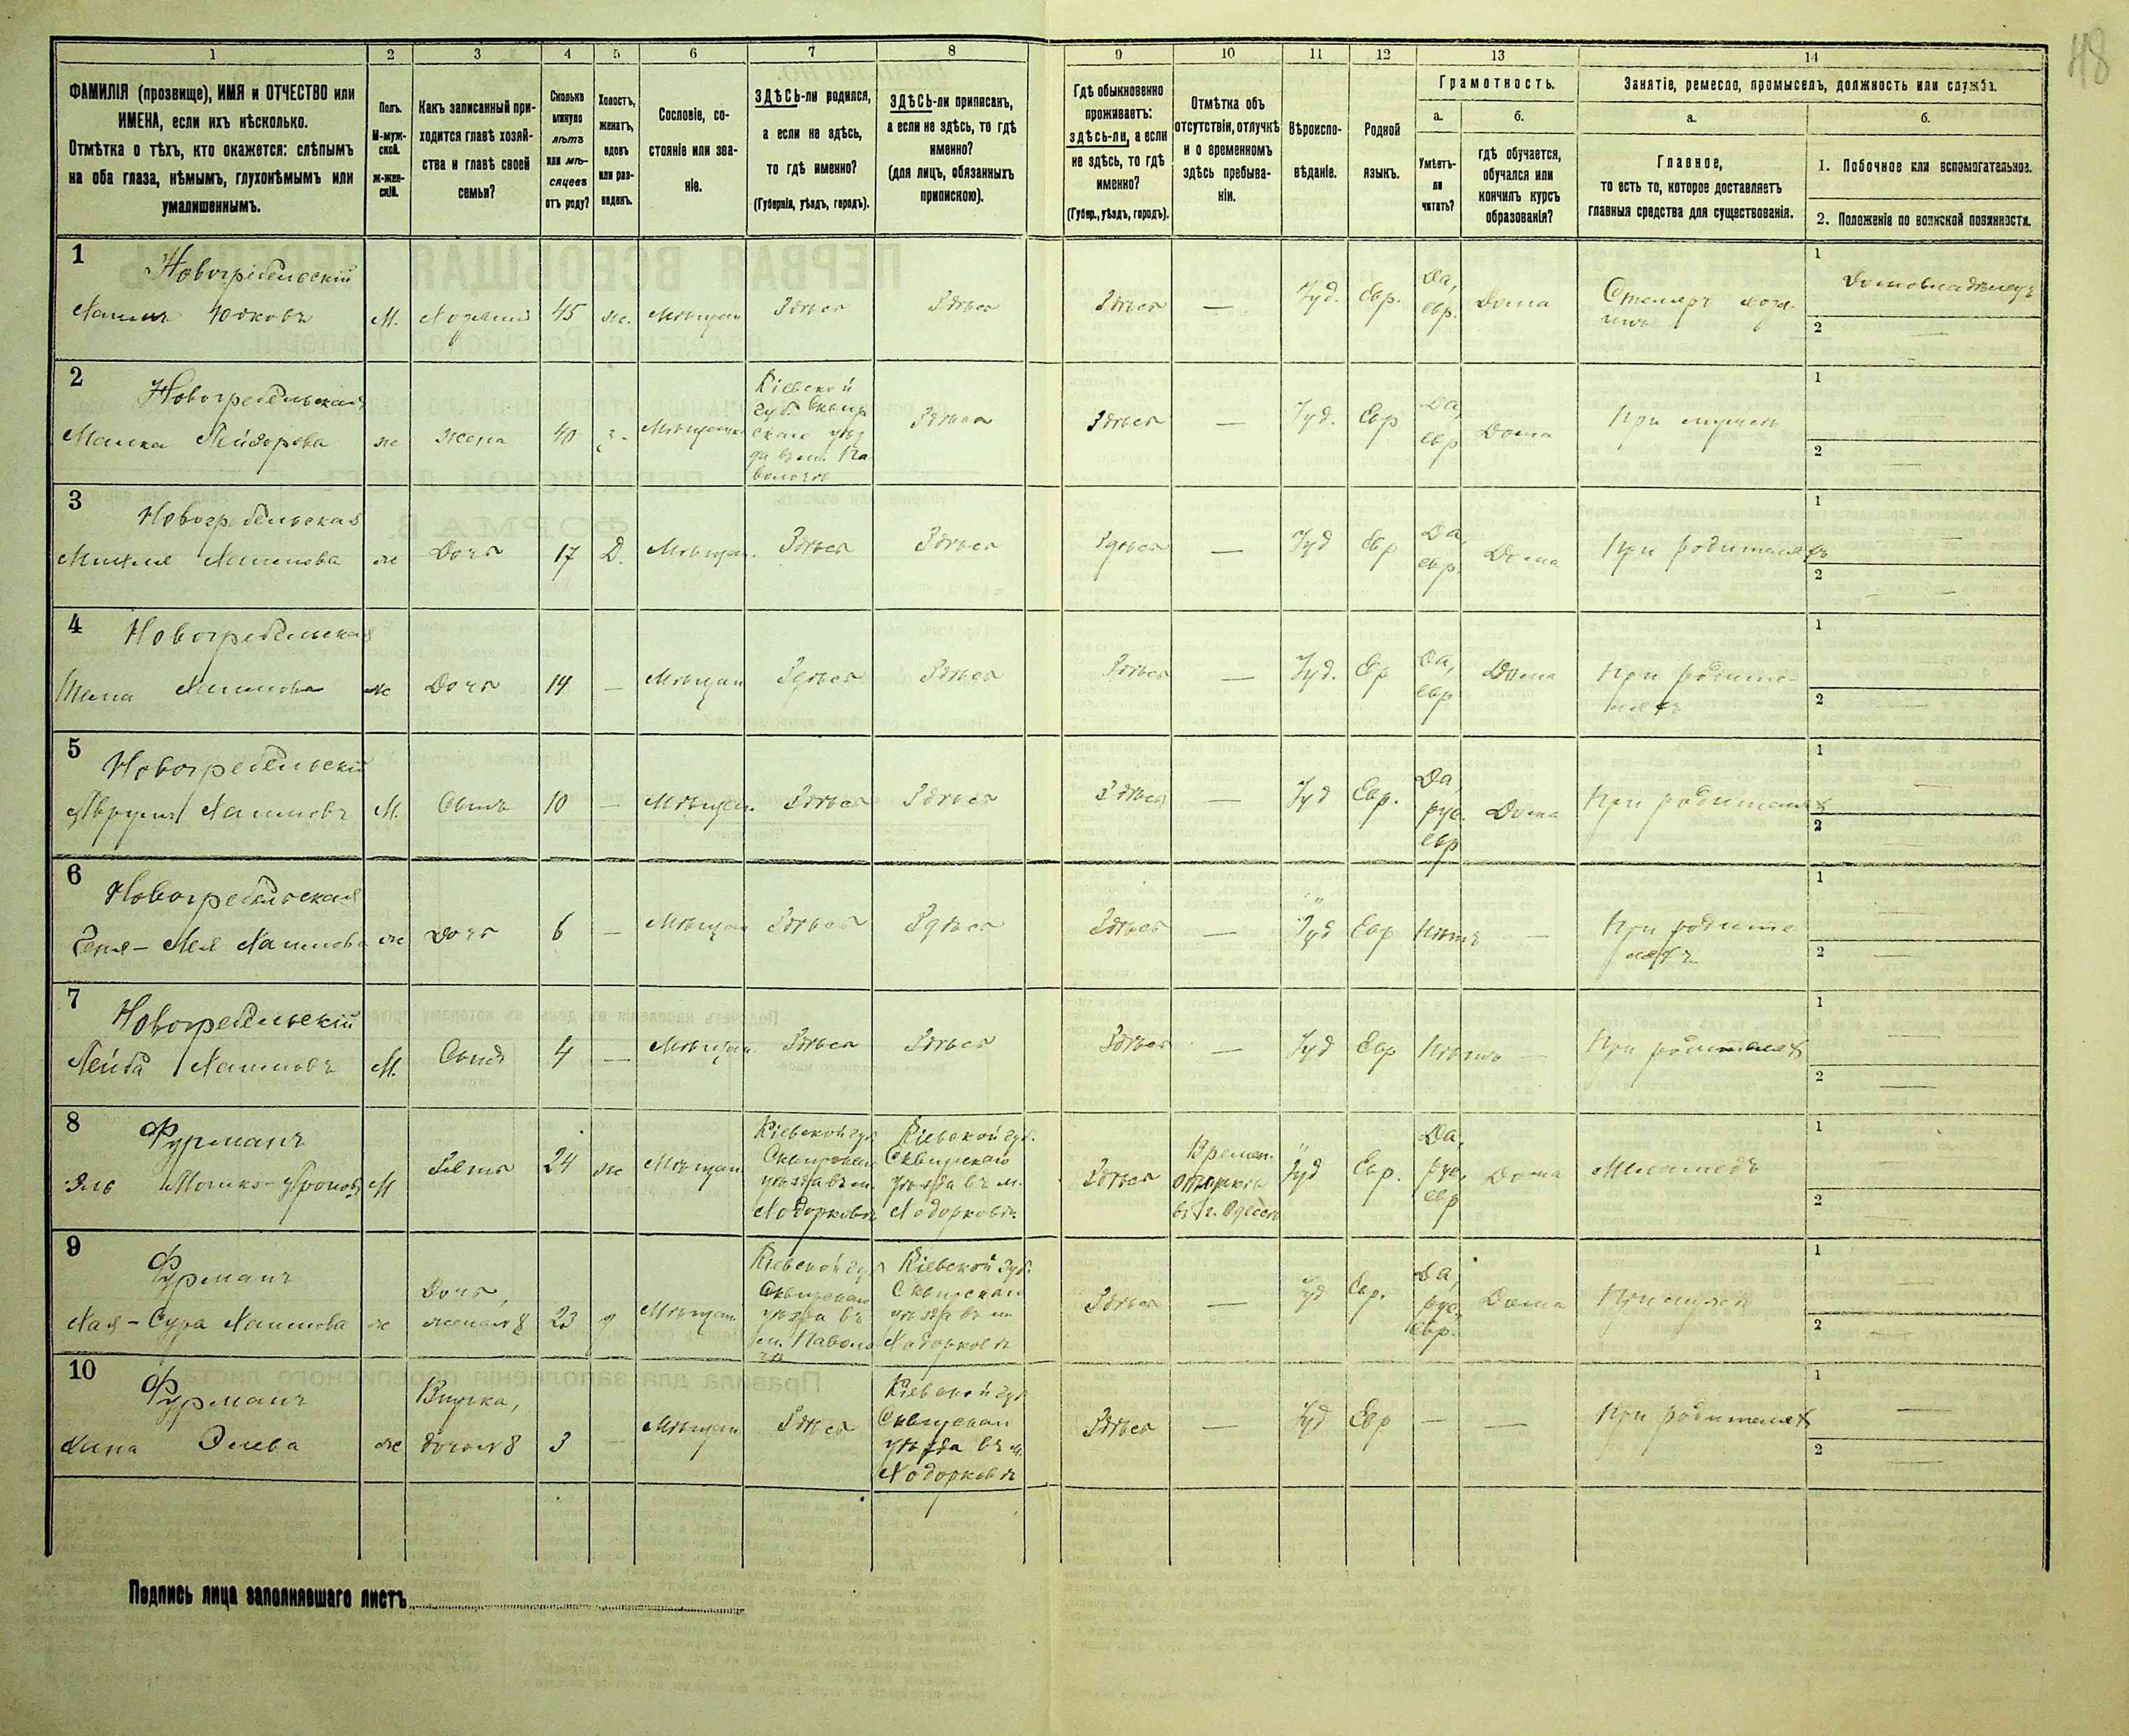 48
1 2 3 4 5 6 7 8 9 10 11 12 13 14
ФАМИЛІЯ (прозвище), ИМЯ и ОТЧЕСТВО или
ИМЕНА, если ихъ нѣсколько.
Отмѣтка о тѣхъ, кто окажется: слѣпымъ
на оба глаза, нѣмымъ, глухонѣмымъ или
умалишеннымъ.
Полъ.
М-муж-
ской.
Ж-жен-
скій.
Какъ записанный при-
ходится главѣ хозяй-
ства и главѣ своей
семьи?
Сколько
минуло
лѣтъ
или мѣ-
сяцевъ
отъ роду?
Холостъ,
женатъ,
вдовъ
или раз-
веденъ.
Сословіе, со-
стояніе или зва-
ніе.
ЗДѢСЬ-ли родился,
а если не здѣсь,
то гдѣ именно?
(Губернія, уѣздъ, городъ).
ЗДѢСЬ-ли приписанъ,
а если не здѣсь, то гдѣ
именно?
(для лицъ, обязанныхъ
припискою).
Гдѣ обыкновенно
проживаетъ:
здѣсь-ли, а если
не здѣсь, то гдѣ
именно?
(Губер., уѣздъ, городъ).
Отмѣтка объ
отсутствіи, отлучкѣ
и о временномъ
здѣсь пребыва-
ніи.
Вѣроиспо-
вѣданіе.
Родной
языкъ.
Грамотность.
а.
Умѣетъ-
ли
читать?
б.
гдѣ обучается,
обучался или
кончилъ курсъ
образованія?
Занятіе, ремесло, промыселъ, должность или служба.
а.
Главное,
то есть то, которое доставляетъ
главныя средства для существованія.
б.
1. Побочное или вспомогательное.
2. Положеніе по воинской повинности.
1
Новогребельскій
Хаимъ Юдковъ М. Хозяинъ 45 ж. Мѣщан Здѣсь Здѣсь Здѣсь — Іуд. Евр. Да, евр. Дома Столяръ хозяинъ
1 Домовладѣлецъ
2 —
2
Новогребельская
Малка Лейзорова ж жена 40 з. Мѣщан Кіевской
губ. Сквир
скаго уѣз
да въ м. Па
волочи
Здѣсь Здѣсь — Іуд. Евр Да, евр Дома При мужѣ
1 —
2 —
3
Новогребельская
Хаимова ж Дочь 17 Д. Мѣщан. Здѣсь Здѣсь Здѣсь — Іуд Евр Да, евр. Дома При родителяхъ
1 —
2 —
4
Новогребельская
Хаимова ж Дочь 14 — Мѣщан Здѣсь Здѣсь Здѣсь — Іуд. Евр Да, евр Дома При родите-
ляхъ
1
2 —
5
Новогребельскій
Хаимовъ М. Сынъ 10 — Мѣщан. Здѣсь Здѣсь Здѣсь — Іуд Евр. Да, рус. евр Дома При родителях
1 —
2 —
6
Новогребельская
Хаимова ж Дочь 6 — Мѣщан Здѣсь Здѣсь Здѣсь — Іуд Евр Нѣтъ — При родите
ляхъ
1 —
2 —
7
Новогребельскій
Лейба Хаимовъ М. Сынъ 4 — Мѣщан Здѣсь Здѣсь Здѣсь — Іуд Евр Нѣтъ — При родителях
1 —
2 —
8
Фурманъ
М Зять 24 ж Мѣщан
Кіевской губ
Сквирскаго
уѣзда въ м.
Ходорковѣ
Кіевской губ.
Сквирскаго
уѣзда въ м.
Ходорковѣ.
Здѣсь
Времен.
отлучкѣ
въ г. Одессѣ
Іуд Евр. Да, рус, евр Дома Меламедъ
1 —
2 —
9
Фурманъ
Хая-Сура Хаимова ж Дочь, 23 з Мѣщан
Кіевской губ
Сквирскаго
уѣзда въ
м. Паволо
чи
Кіевской губ.
Сквирскаго
уѣзда въ м
Ходорковѣ
Здѣсь — Іуд Евр. Да, рус, евр. Дома При мужѣ
1 —
2 —
10
Фурманъ
Элева ж Внучка, 3 — Мѣщан Здѣсь
Кіевской губ
Сквирскаго
уѣзда въ м.
Ходорковѣ
Здѣсь — Іуд Евр — — При родителях
1 —
2 —
Подпись лица заполнявшаго листъ